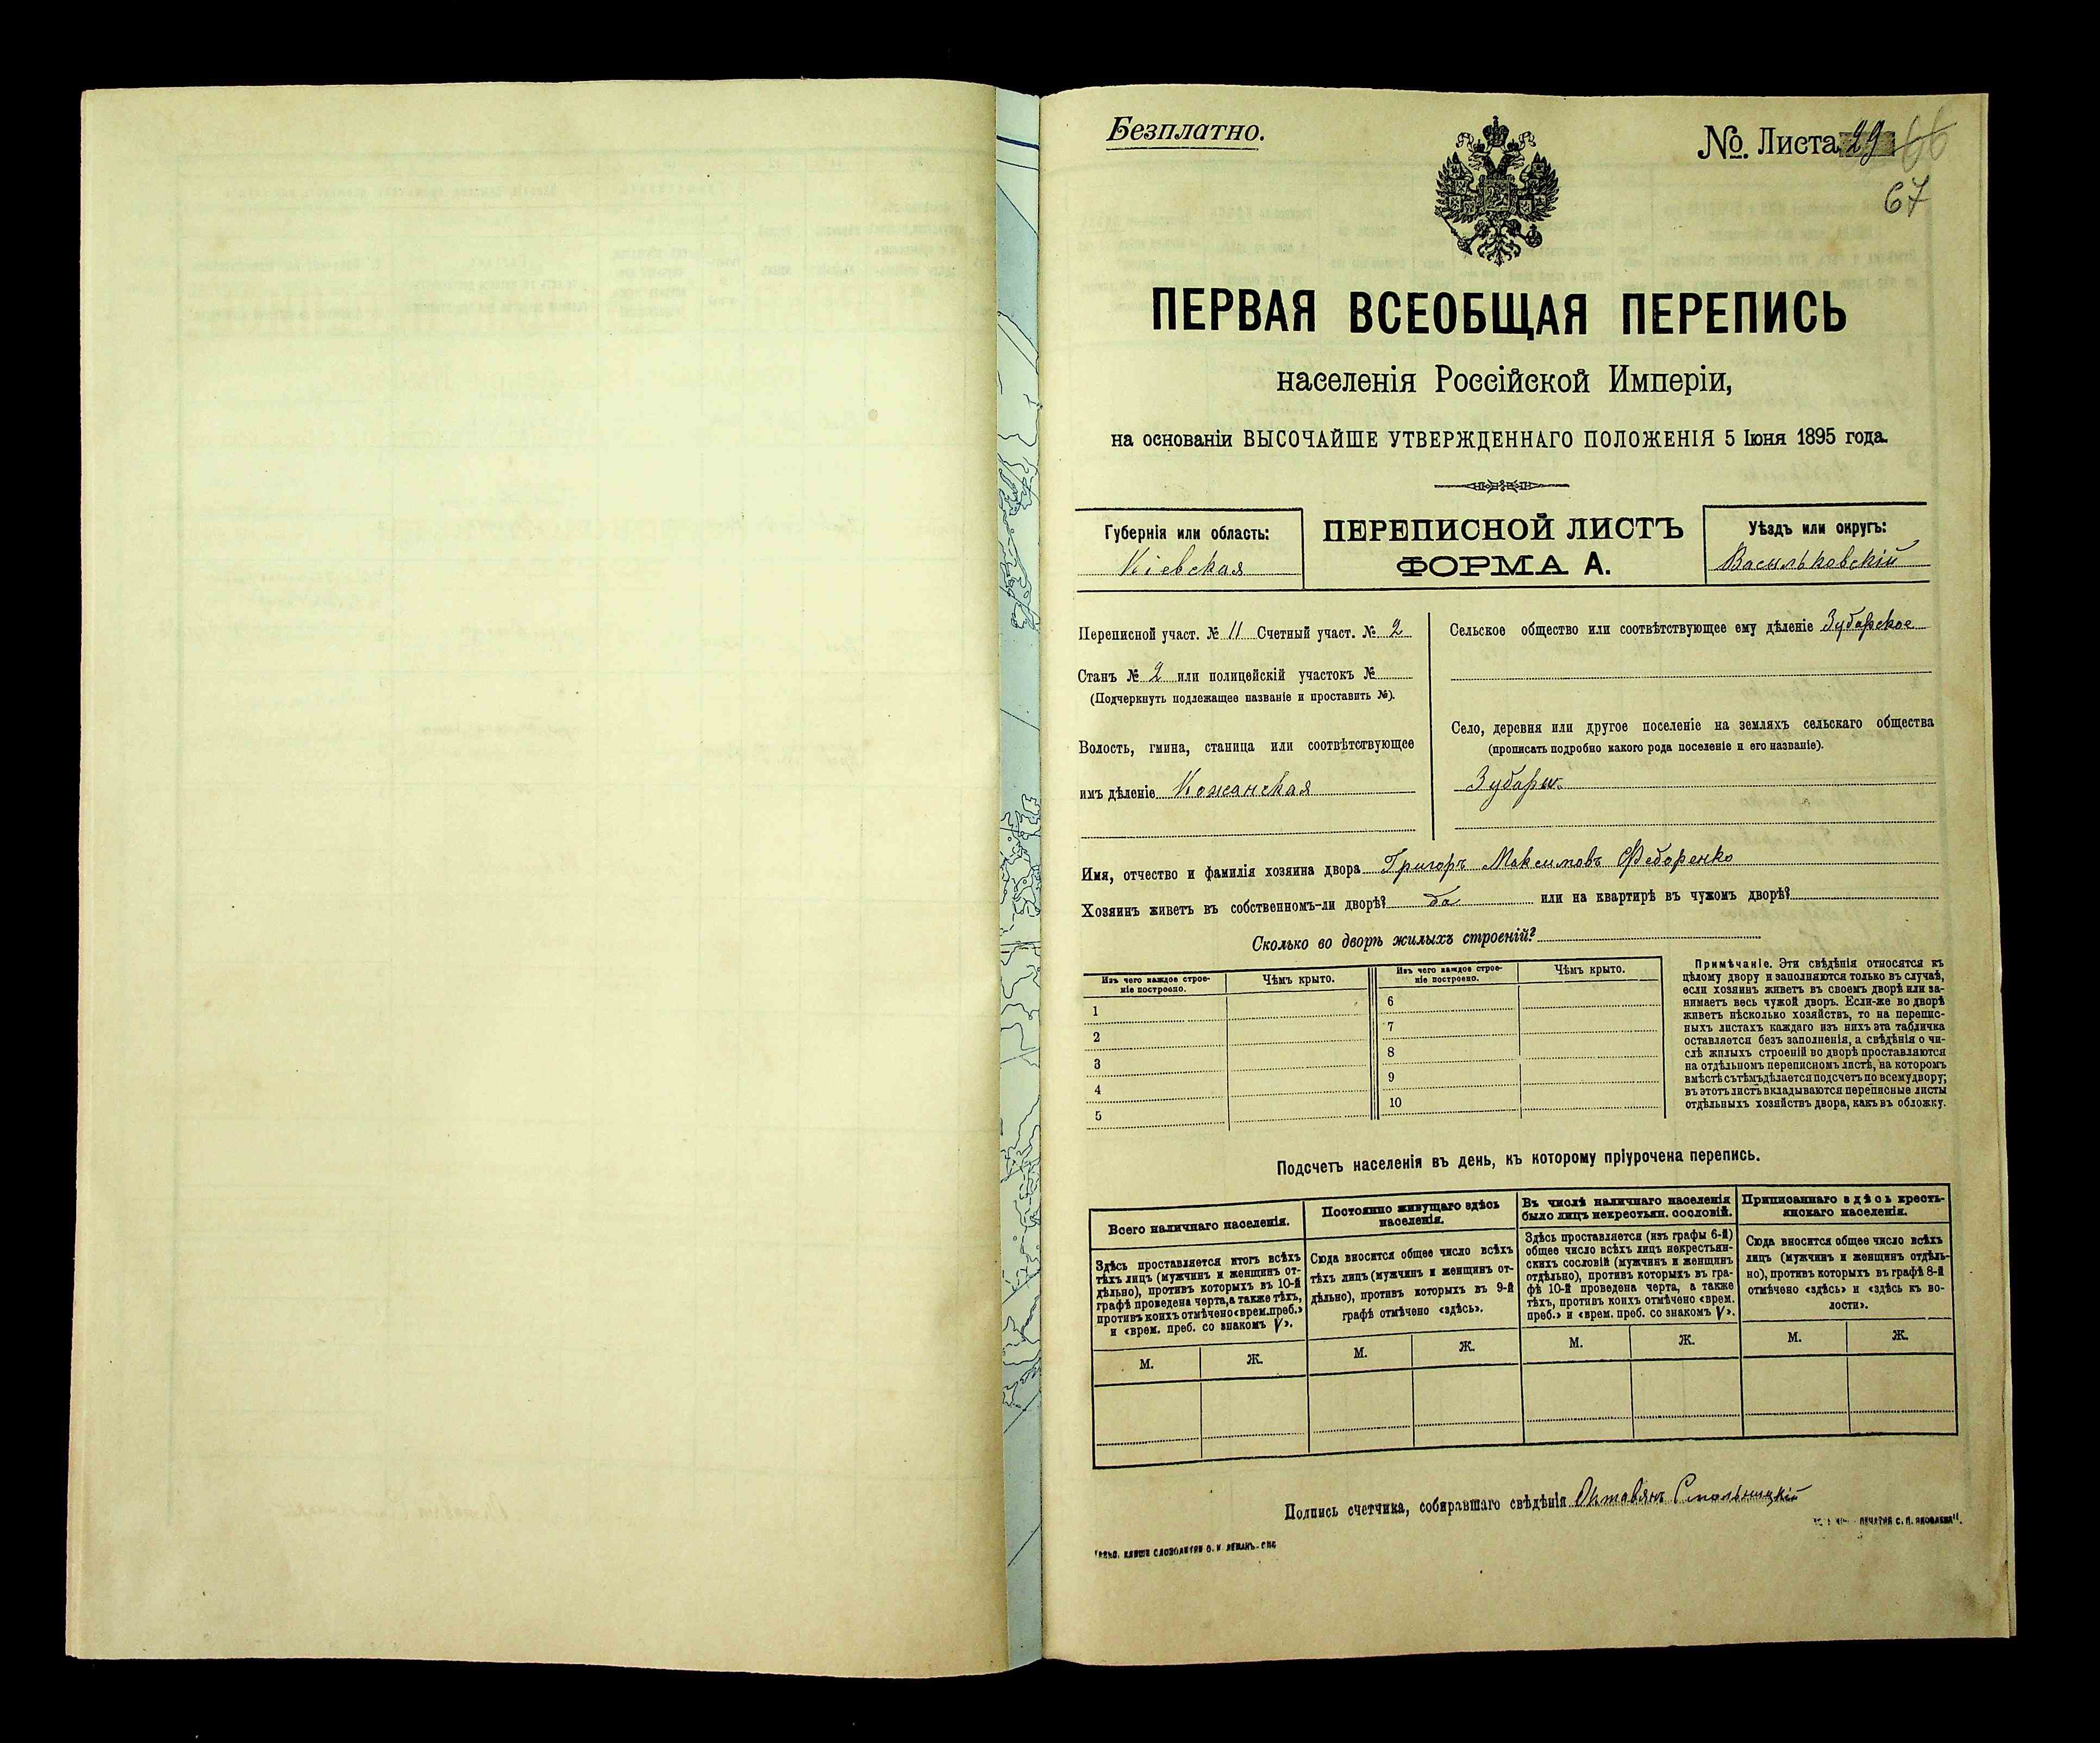 Безплатно.
№. Листа 29 66
67
ПЕРВАЯ ВСЕОБЩАЯ ПЕРЕПИСЬ
населенія Россійской Имперіи,
на основаніи ВЫСОЧАЙШЕ УТВЕРЖДЕННАГО ПОЛОЖЕНІЯ 5 Іюня 1895 года.
Губернія или область:
Кіевская
ПЕРЕПИСНОЙ ЛИСТЪ
ФОРМА А.
Уѣздъ или округъ:
Васильковскій
Переписной участ. № 11 Счетный участ. № 2
Станъ № 2 или полицейскій участокъ №
(Подчеркнуть подлежащее названіе и проставить №).
Волость, гмина, станица или соотвѣтствующее
имъ дѣленіе Кожанская
Сельское общество или соотвѣтствующее ему дѣленіе Зубарское
Село, деревня или другое поселеніе на земляхъ сельскаго общества
(прописать подробно какого рода поселеніе и его названіе).
Зубары
Имя, отчество и фамилія хозяина двора Григоръ Максимовъ Федоренко
Хозяинъ живетъ въ собственномъ-ли дворѣ? да или на квартирѣ въ чужомъ дворѣ?
Сколько во дворѣ жилыхъ строеній?
Изъ чего каждое строе-
ніе построено.
Чѣмъ крыто.
Изъ чего каждое строе-
ніе построено.
Чѣмъ крыто.
1
2
3
4
5
6
7
8
9
10
Примѣчаніе. Эти свѣдѣнія относятся къ
цѣлому двору и заполняются только въ случаѣ,
если хозяинъ живетъ въ своемъ дворѣ или за-
нимаетъ весь чужой дворъ. Если-же во дворѣ
живетъ нѣсколько хозяйствъ, то на перепис-
ныхъ листахъ каждаго изъ нихъ эта табличка
оставляется безъ заполненія, а свѣдѣнія о чи-
слѣ жилыхъ строеній во дворѣ проставляются
на отдѣльномъ переписномъ листѣ, на которомъ
вмѣстѣ съ тѣмъ дѣлается подсчетъ по всему двору;
въ этотъ листъ вкладываются переписные листы
отдѣльныхъ хозяйствъ двора, какъ въ обложку.
Подсчетъ населенія въ день, къ которому пріурочена перепись.
Всего наличнаго населенія.
Здѣсь проставляется итогъ всѣхъ
тѣхъ лицъ (мужчинъ и женщинъ от-
дѣльно), противъ которыхъ въ 10-й
графѣ проведена черта, а также тѣхъ,
противъ коихъ отмѣчено «врем. преб.»
и «врем. преб. со знакомъ V».
М. Ж.
Постоянно живущаго здѣсь
населенія.
Сюда вносится общее число всѣхъ
тѣхъ лицъ (мужчинъ и женщинъ от-
дѣльно), противъ которыхъ въ 9-й
графѣ отмѣчено «здѣсь».
М. Ж.
Въ числѣ наличнаго населенія
было лицъ некрестьян. сословій.
Здѣсь проставляется (изъ графы 6-й)
общее число всѣхъ лицъ некрестьян-
скихъ сословій (мужчинъ и женщинъ
отдѣльно), противъ которыхъ въ гра-
фѣ 10-й проведена черта, а также
тѣхъ, противъ коихъ отмѣчено «врем.
преб.» и «врем. преб. со знакомъ V».
М. Ж.
Приписаннаго здѣсь кресть-
янскаго населенія.
Сюда вносится общее число всѣхъ
лицъ (мужчинъ и женщинъ отдѣль-
но), противъ которыхъ въ графѣ 8-й
отмѣчено «здѣсь» и «здѣсь къ во-
лости».
М. Ж.
Подпись счетчика, собиравшаго свѣдѣнія Октавянъ Смольницкій
ПЕЧАТНЯ С. П. ЯКОВЛЕВА".
СЛОВОЛИТНИ О. И. ЛЕМАНЪ. СПБ